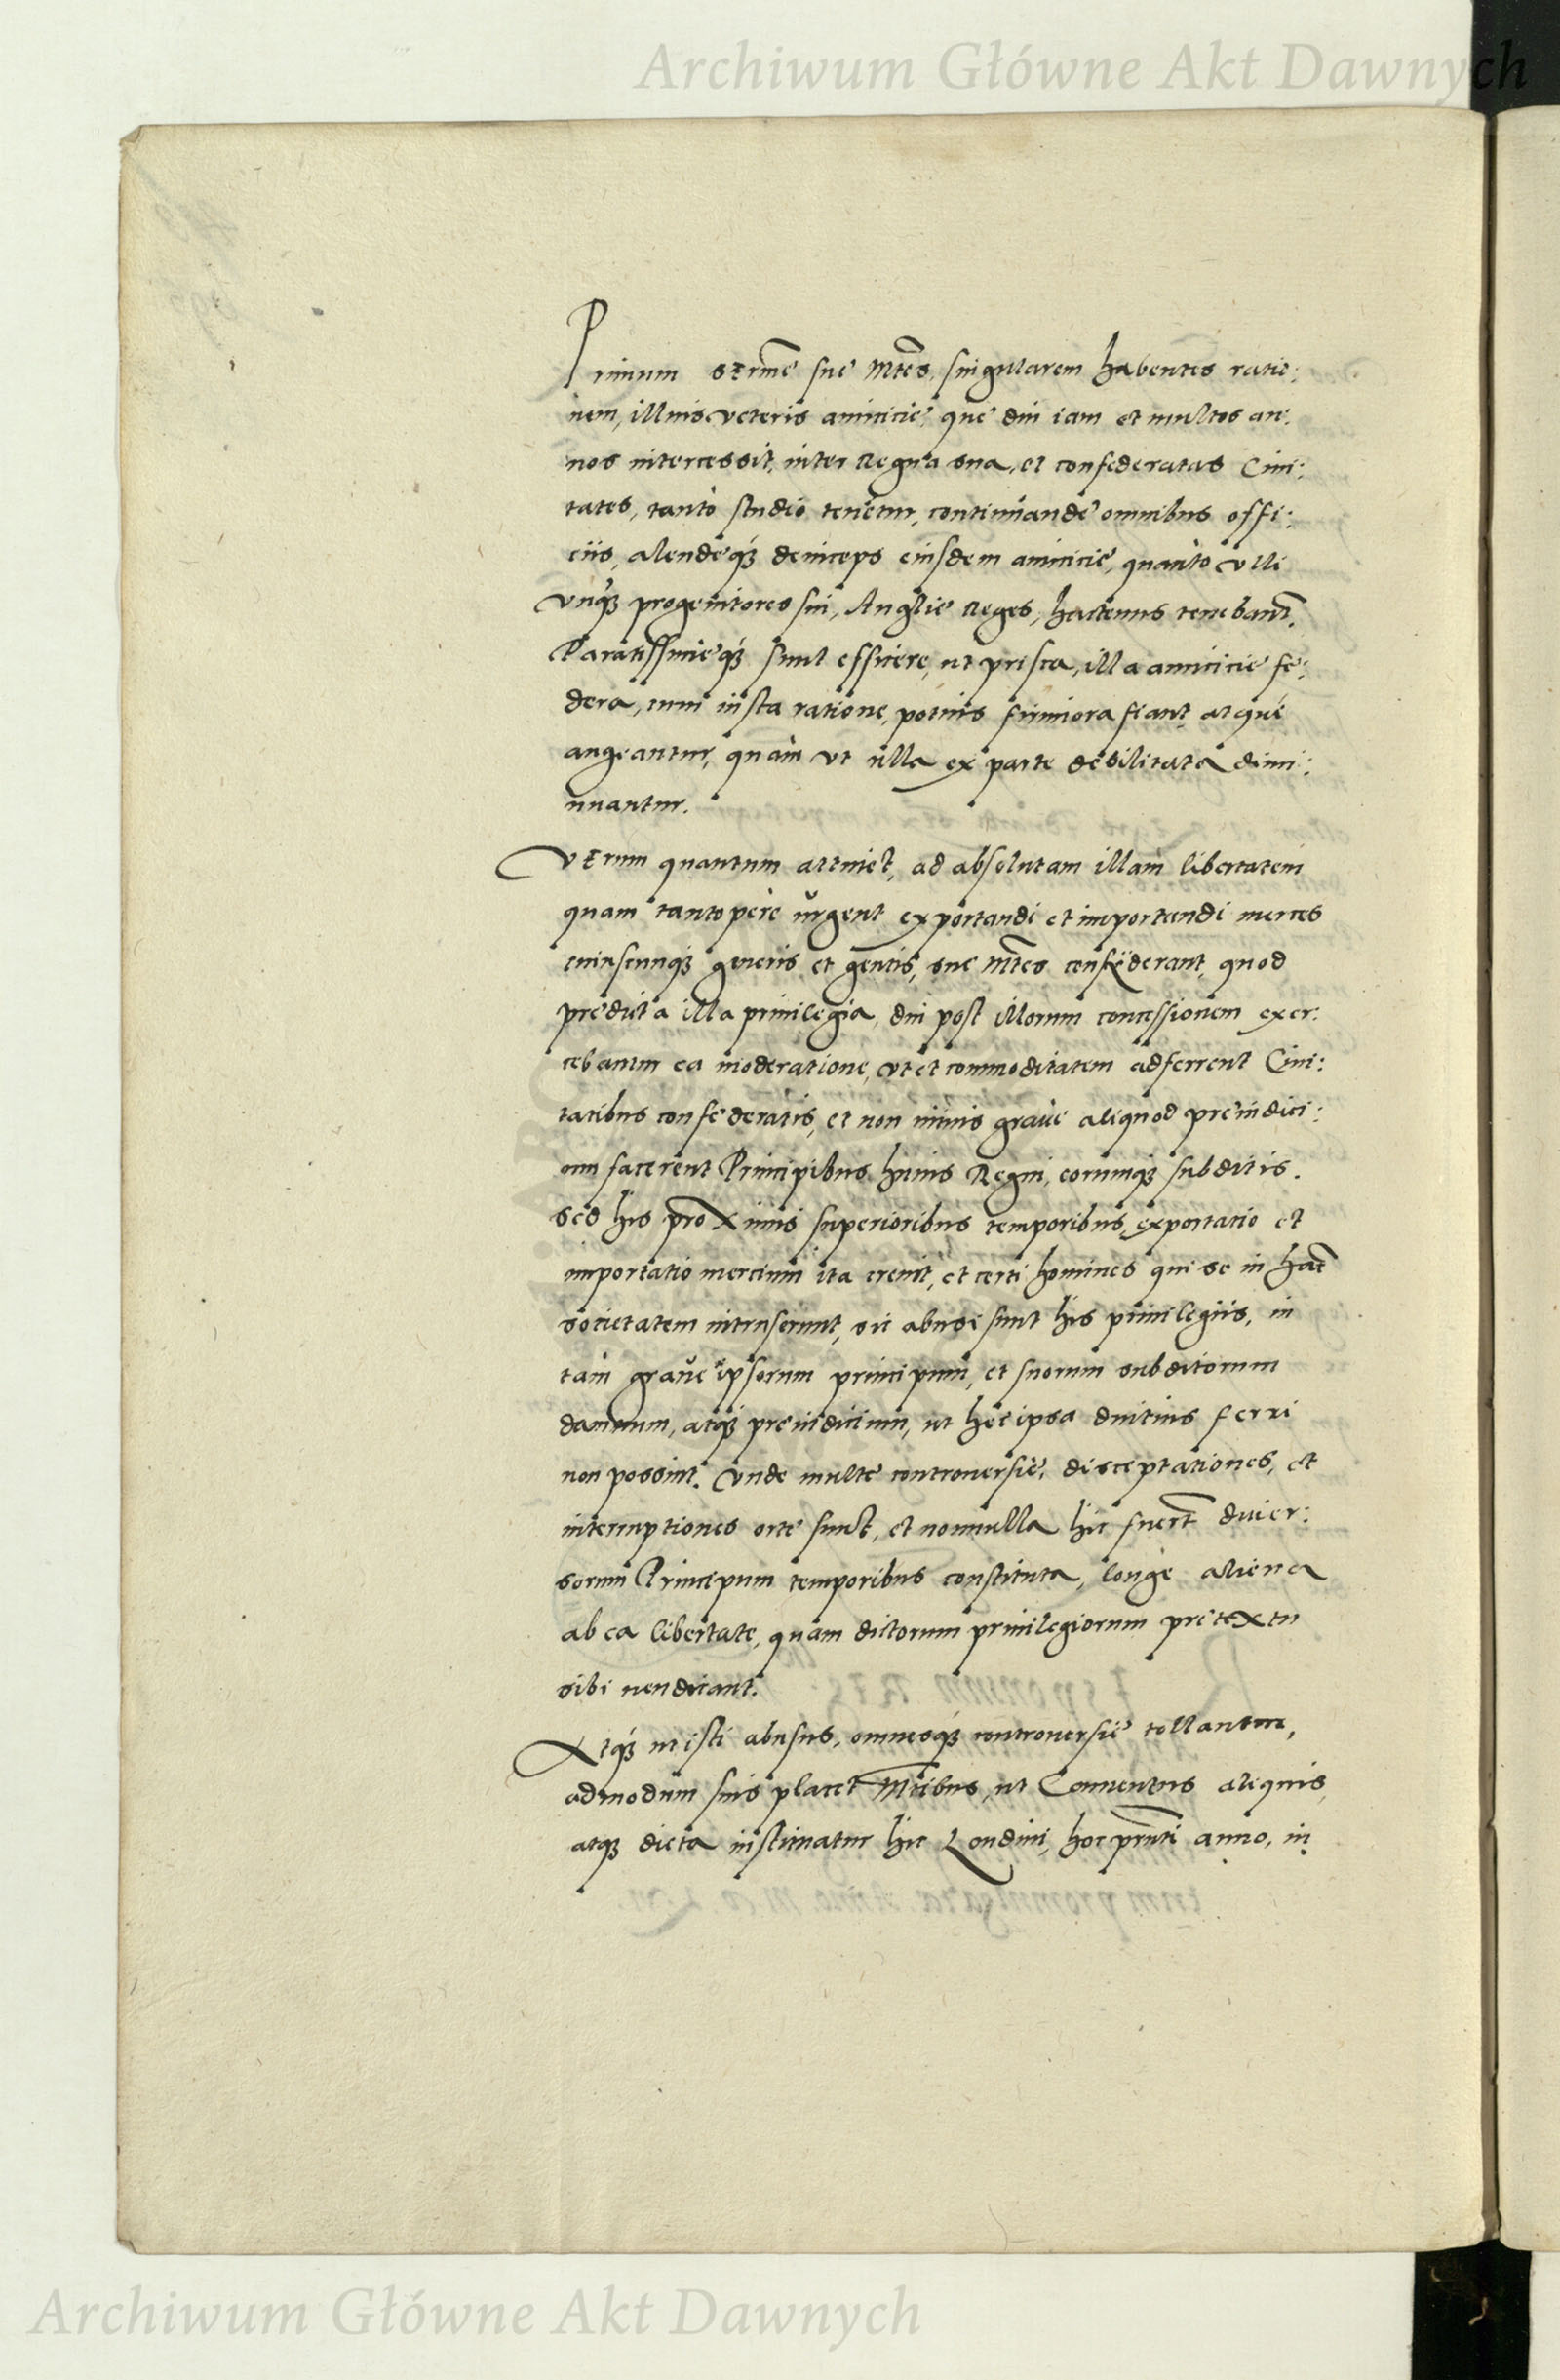 Archiwum Główne Akt Dawnych
Primum sermē suę Mtēs, singularem habentes ratio:
nem, illius veteris amicicię, quę diu iam et multos an:
nos intercessit, inter Regna sua, et confederatas Ciui:
tates, tanto studio tenētur, continuandę omnibus offi:
ciis, alendęq́ꝫ deinceps eiusdem amicicię, quanto vlli
vnq̃ꝫ progenitores sui, Anglię Reges, hactenus tenebant̃.
Paratissimęq́ꝫ sunt efficere, ut prisca, illa amicicię fę:
dera, cum iusta ratione, potius firmiora fiant, atque
augeantur, quàm vt ulla ex parte debilitata dimi:
nuantur.
Verum quantum attinet, ad absolutam illam libertatem
quam tantopere urgent exportandi et importandi merces
cuiuscunq́ꝫ generis et gentis, suę Mtēs consyderant, quod
prędicta illa priuilegia, diu post illorum concessionem exer:
cebantur ea moderatione, vt et commoditatem adferrent Ciui:
tatibus confęderatis, et non nimis graue aliquod pręiudici:
um facerent Principibus huius Regni, eorumq́ꝫ subditis.
Sed his proximis superioribus temporibus, exportatio et
importatio mercium ita creuit, et certi homines qui se in hāc
societatem intruserunt, sic abusi sunt his priuilegiis, in
tam graue ipsorum principum, et suorum subditorum
damnum, atq́ꝫ pręiudicium, ut hęc ipsa diutius ferri
non possint. Vnde multę controuersię, disceptationes, et
interruptiones ortę sunt, et nonnulla hic fuerūt diuer:
sorum Principum temporibus constituta, longe aliena
ab ea libertate, quam dictorum priuilegiorum pretextu
sibi uendicant.
Atq́ꝫ ut isti abusus, omnesq́ꝫ controuersię tollantur,
admodum suis placet Mtībus, ut Conuentus aliquis,
atqꝫ dieta instituatur hic Londini, hoc prñti anno, in
Archiwum Główne Akt Dawnych